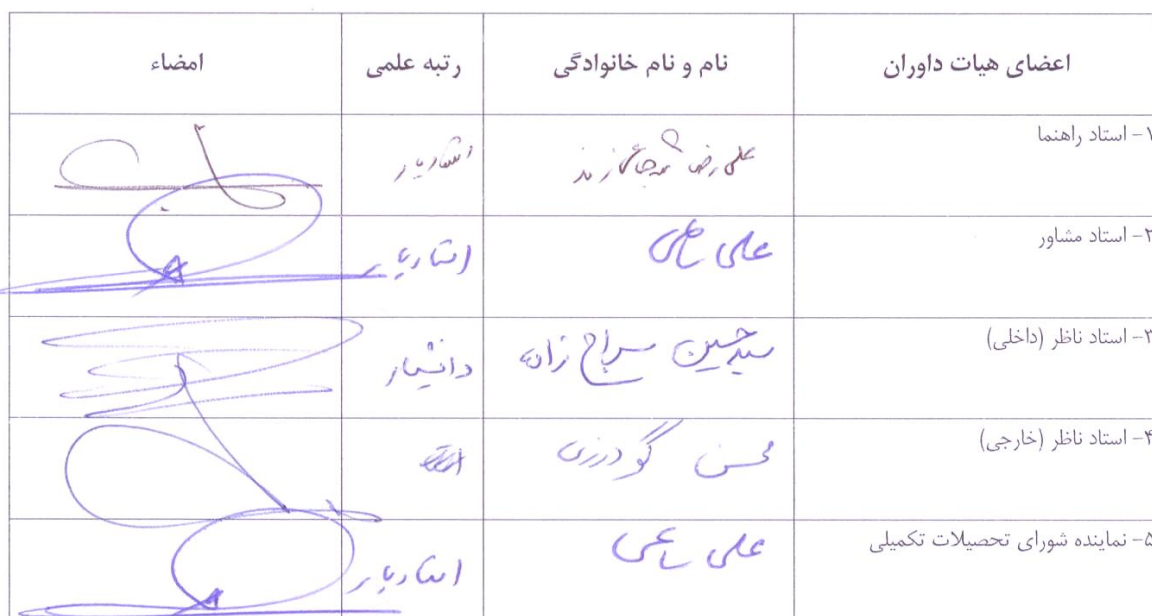 اعضای هیات داوران نام و نام خانوادگی رتبه علمی امضاء
۱- استاد راهنما علی رضا شجاعی زند استادیار
۲- استاد مشاور علی ساعی استادیار
۳- استاد ناظر (داخلی) سید حسین سراج زاده دانشیار
۴- استاد ناظر (خارجی) محسن گودرزی
۵- نماینده شورای تحصیلات تکمیلی علی ساعی استادیار